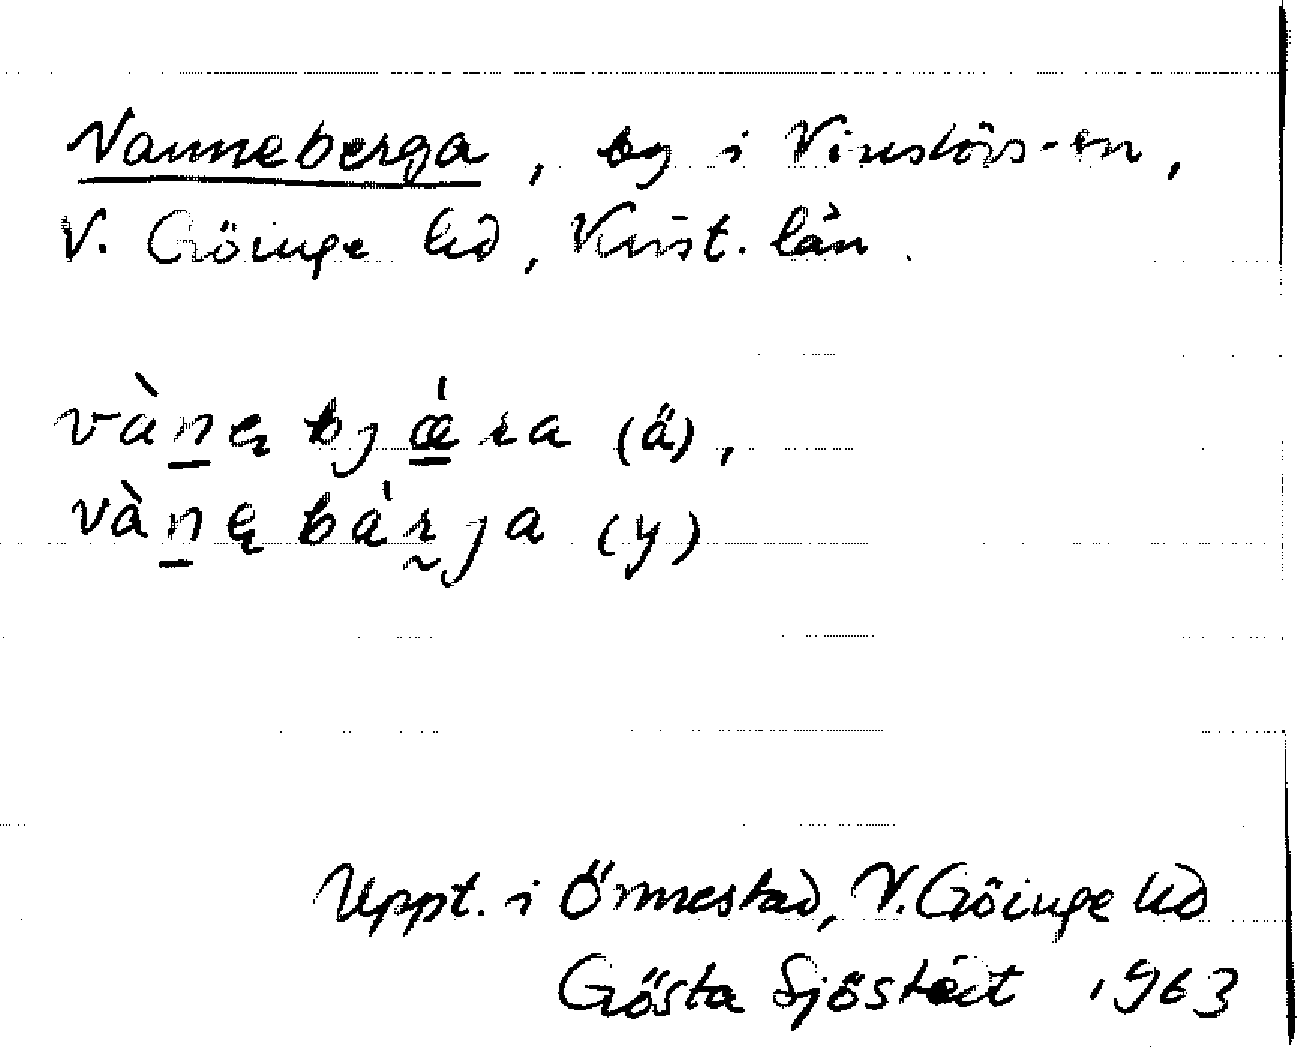 Vanneberga, by i Vinslövs-sn,
V. Göinge hd, Krist. län.
vànę bjǽra (ä),
vànę bárja (y)
Uppt. i Önnestad, V. Göinge hd
Gösta Sjöstedt 1963